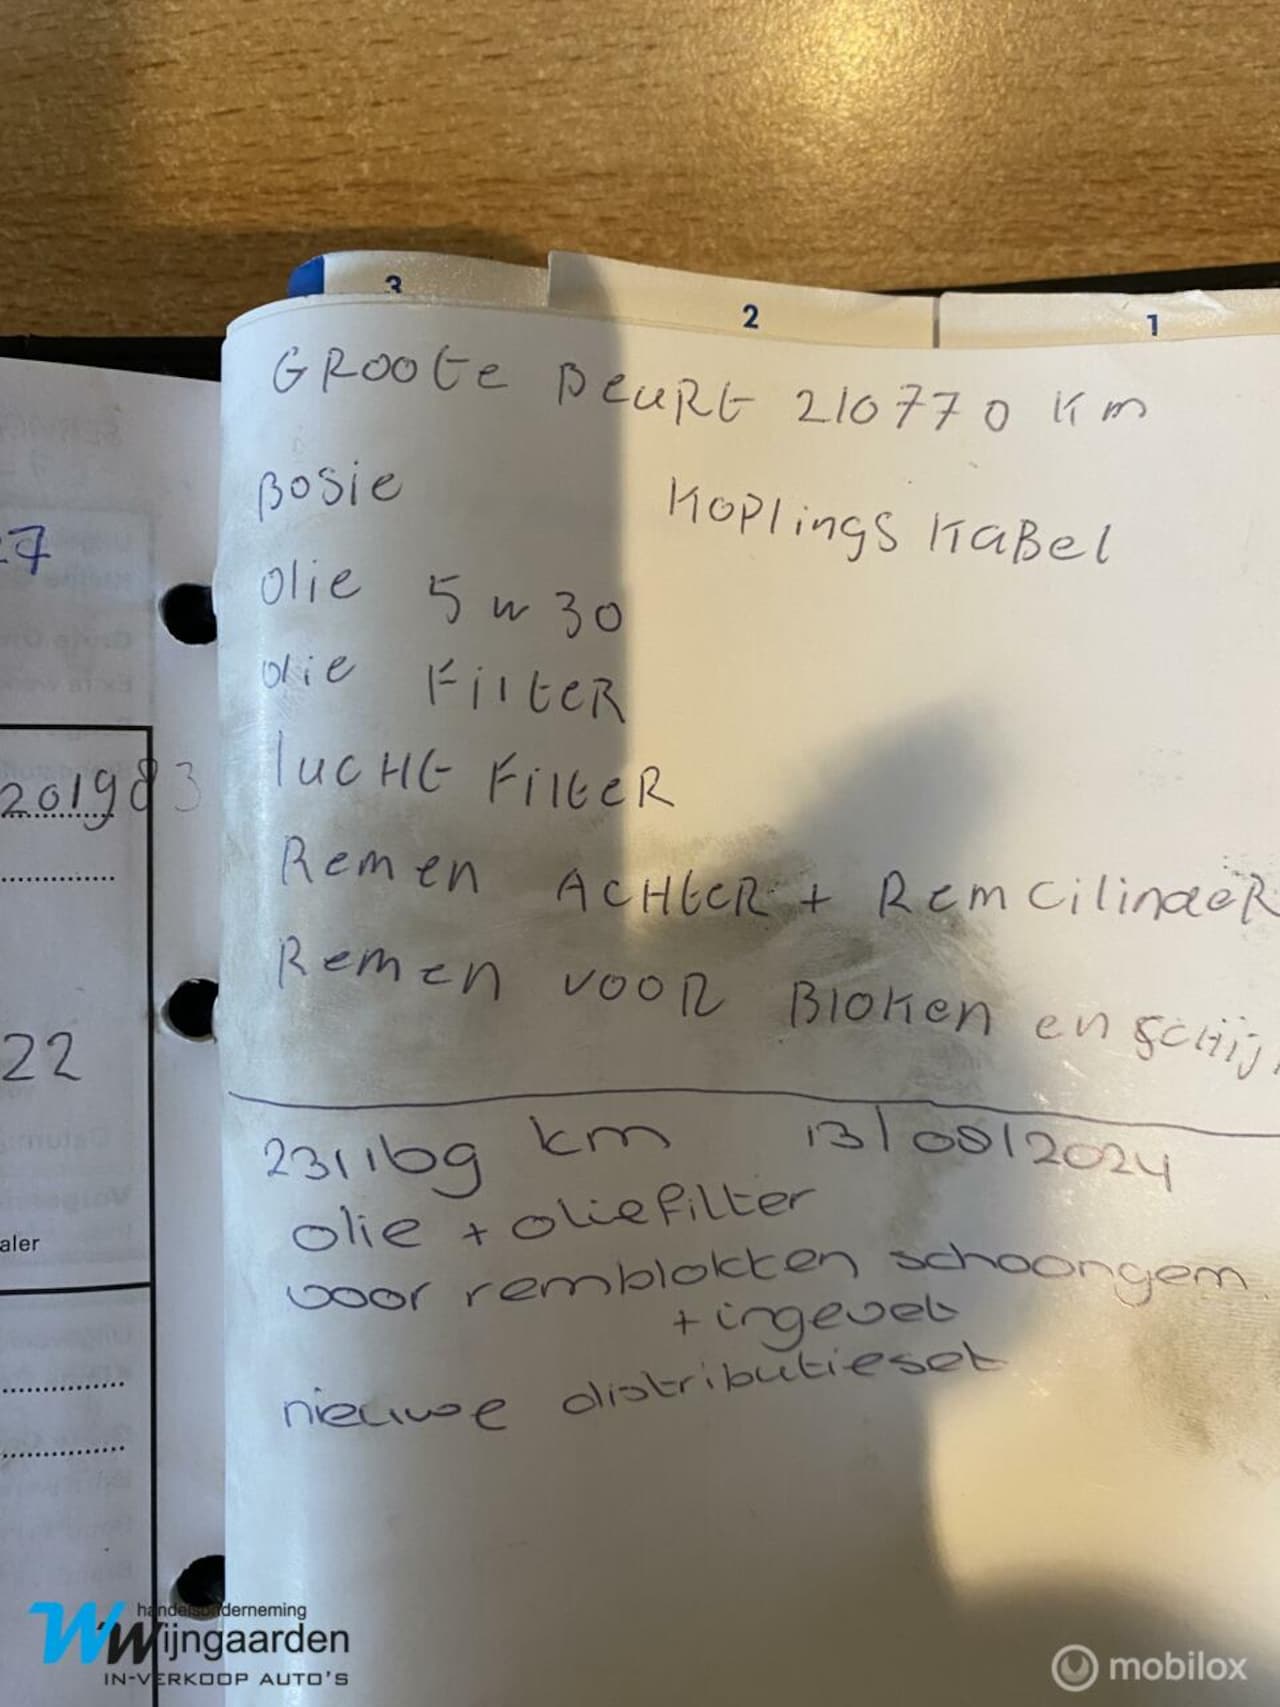 3
2
1
GROOTE BEURT 210770 Km
BOSIE
KOPLINGS KABEL
olie 5w30
olie FILTER
LUCHT FILTER
Remen ACHTER + Remcilinder
Remen VOOR Bloken en schij
231169 km 13/08/2024
olie + oliefilter
voor remblokken schoongem.
+ ingevet
nieuwe distributieset
27
201983
22
aler
handelsonderneming
Wijngaarden
IN-VERKOOP AUTO'S
mobilox